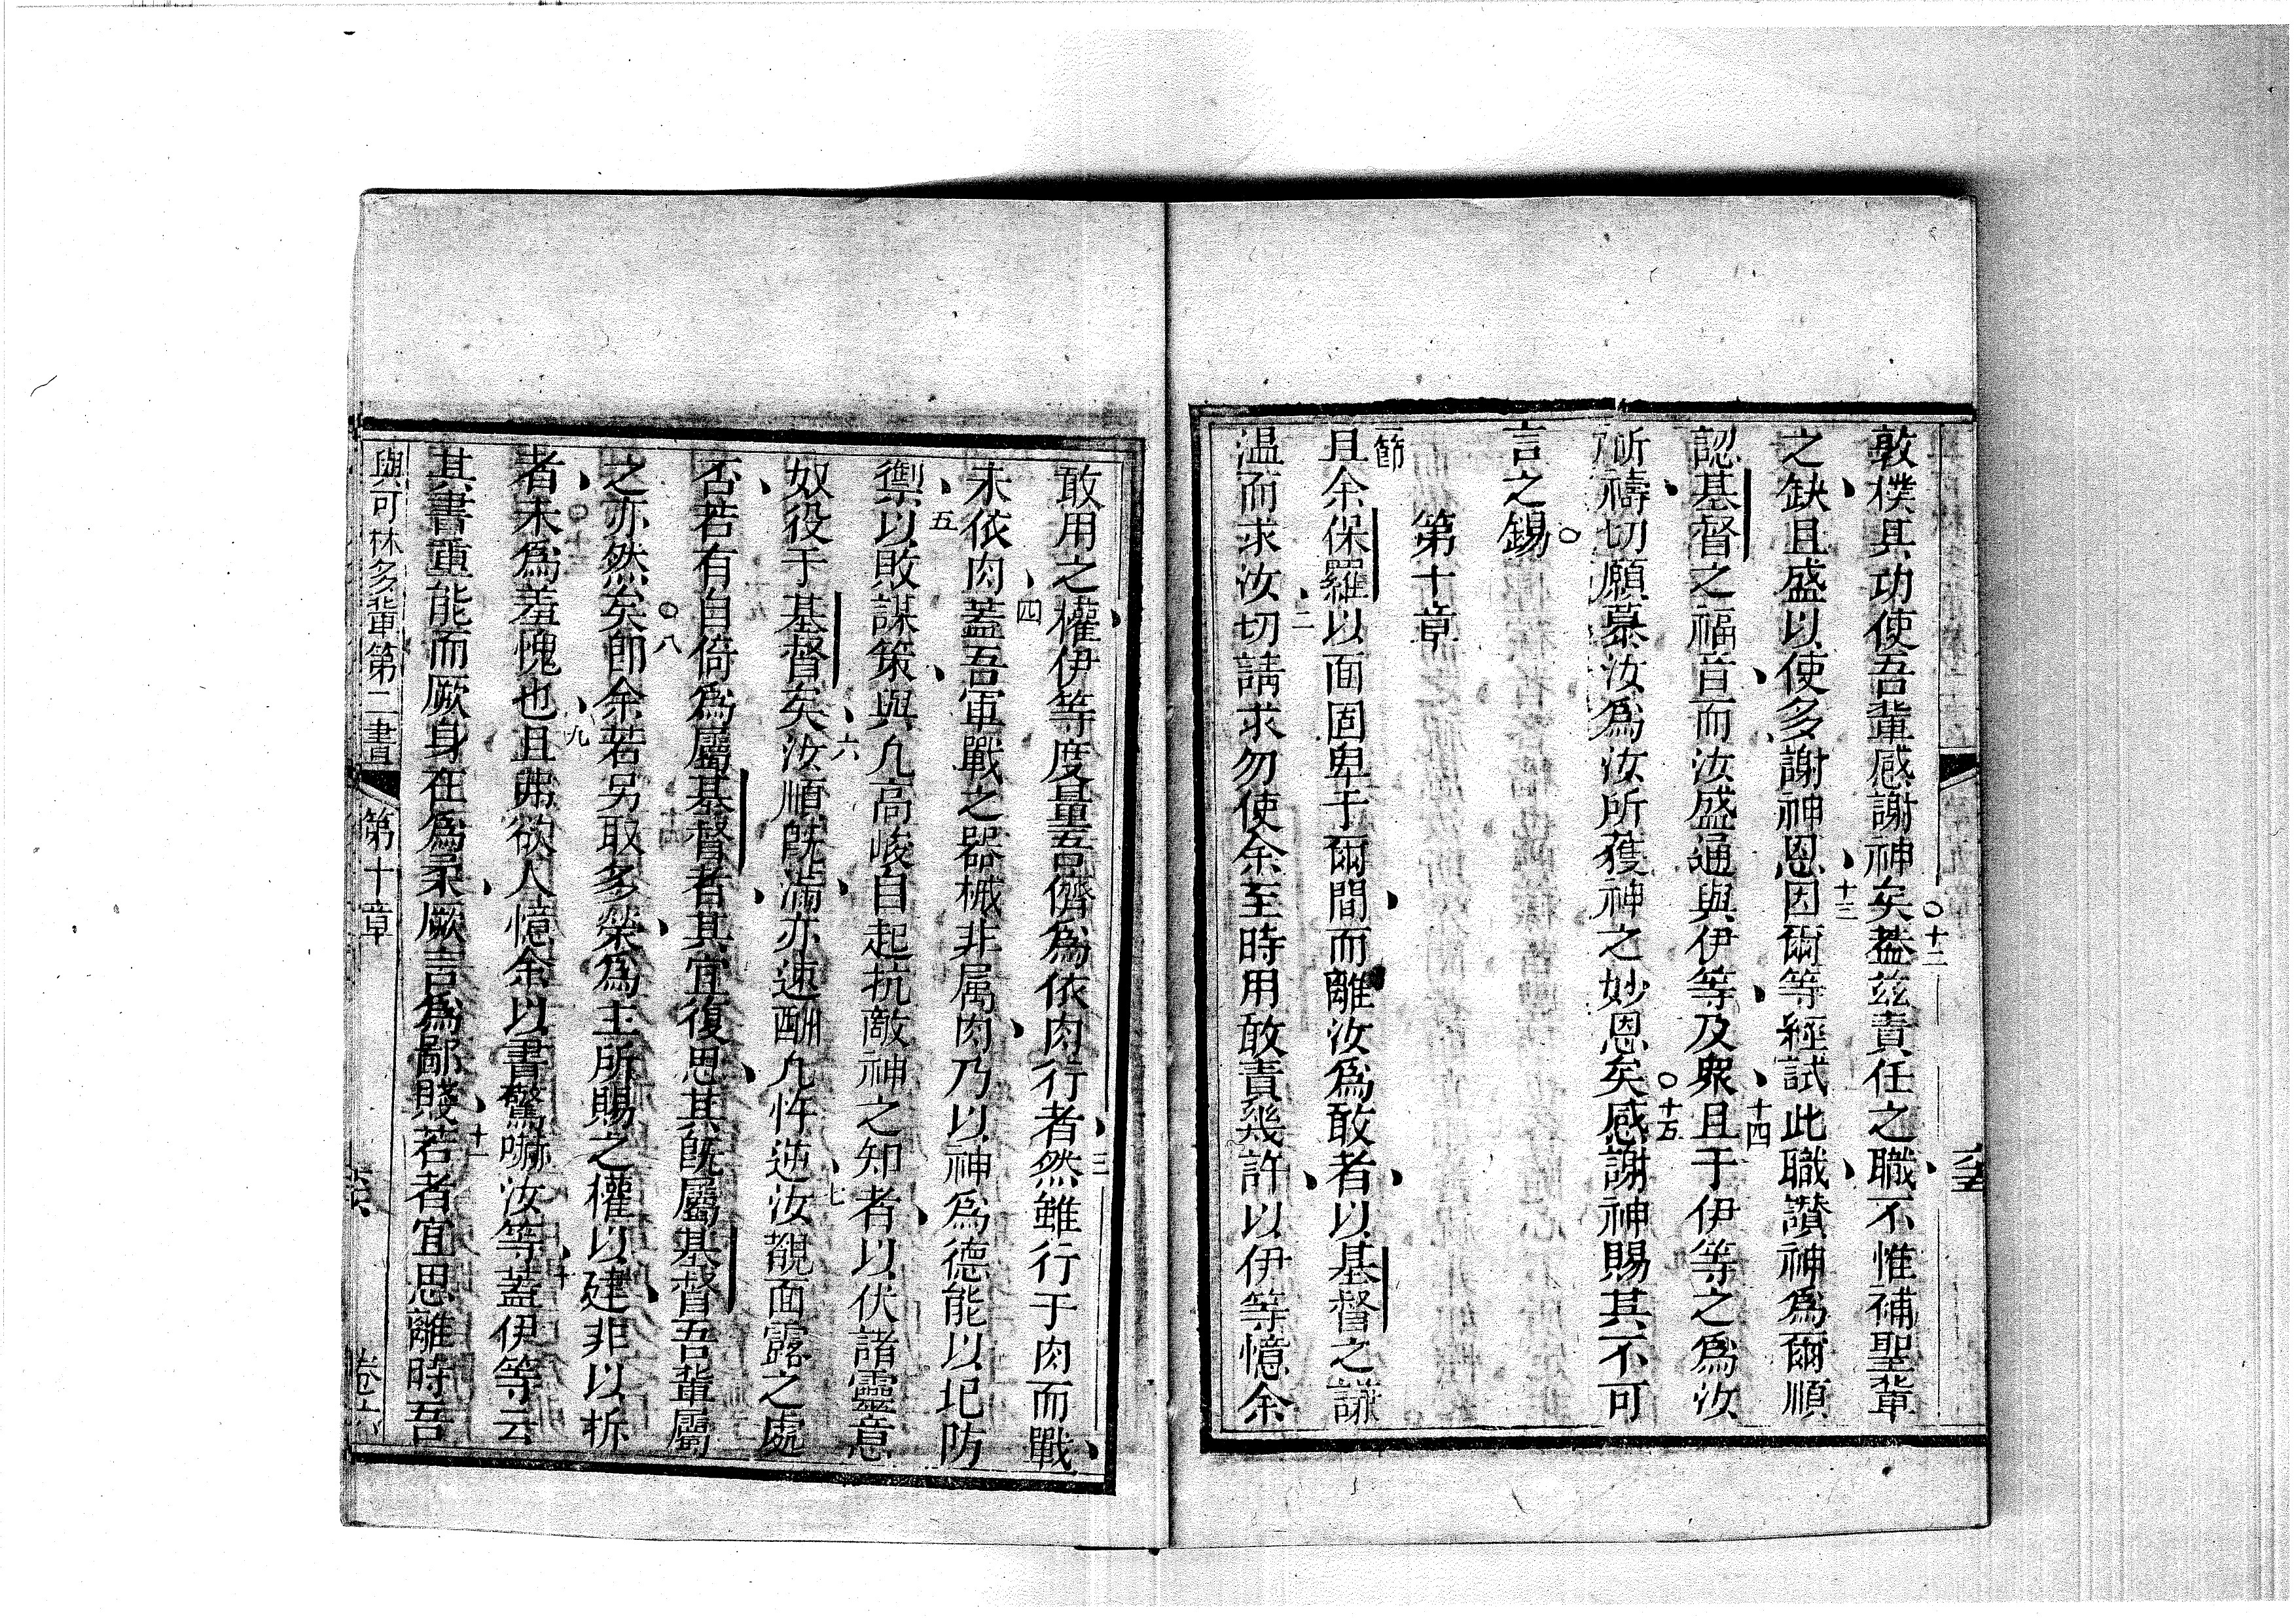 敦樸其功使吾輩感謝神矣○十二蓋茲責任之職不惟補聖輩
之缺且盛以使多謝神恩十三因爾等經試此職讚神為爾順
認基督之福音而汝盛通與伊等及衆十四且于伊等之為汝
所禱切願慕汝為汝所獲神之妙恩矣○十五感謝神賜其不可
言之錫○
第十章
一節且余保羅以面固卑于爾間而離汝為敢者以基督之謙
温而求汝二切請求勿使余至時用敢責幾許以伊等憶余
敢用之權伊等度量吾儕為依肉行者三然雖行于肉而戰
未依肉四蓋吾軍戰之器械非属肉乃以神為德能以圮防
禦五以敗謀策與凢高峻自起抗敵神之知者以伏諸靈意
奴役于基督矣六汝順既滿亦速酬凢忤逆七汝覩面露之處
否若有自倚為屬基督者其宜復思其既屬基督吾輩屬
之亦然矣○八即余若另取多榮為主所賜之權以建非以拆
者未為羞愧也九且弗欲人憶余以書驚嚇汝等十蓋伊等云
其書重能而厥身在為柔厥言為鄙賤十一若者宜思離時吾
與可林多輩第二書 第十章 卷六